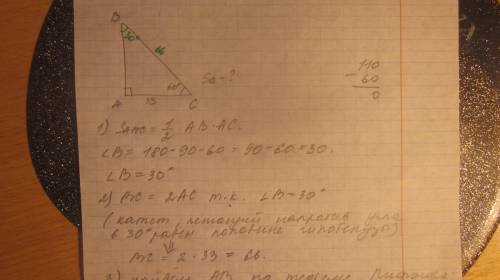 B
30° 66
A 60° C
S△ - ?
110
- 60
0
1) SABC = 1/2 AB · AC.
∠B = 180 - 90 - 60 = 90 - 60 = 30.
∠B = 30°
2) BC = 2AC т.к. ∠B = 30°
(катет лежащий напротив угла
в 30° равен половине гипотенузы)
BC = 2 · 33 = 66.
3) AB по теореме Пифагора